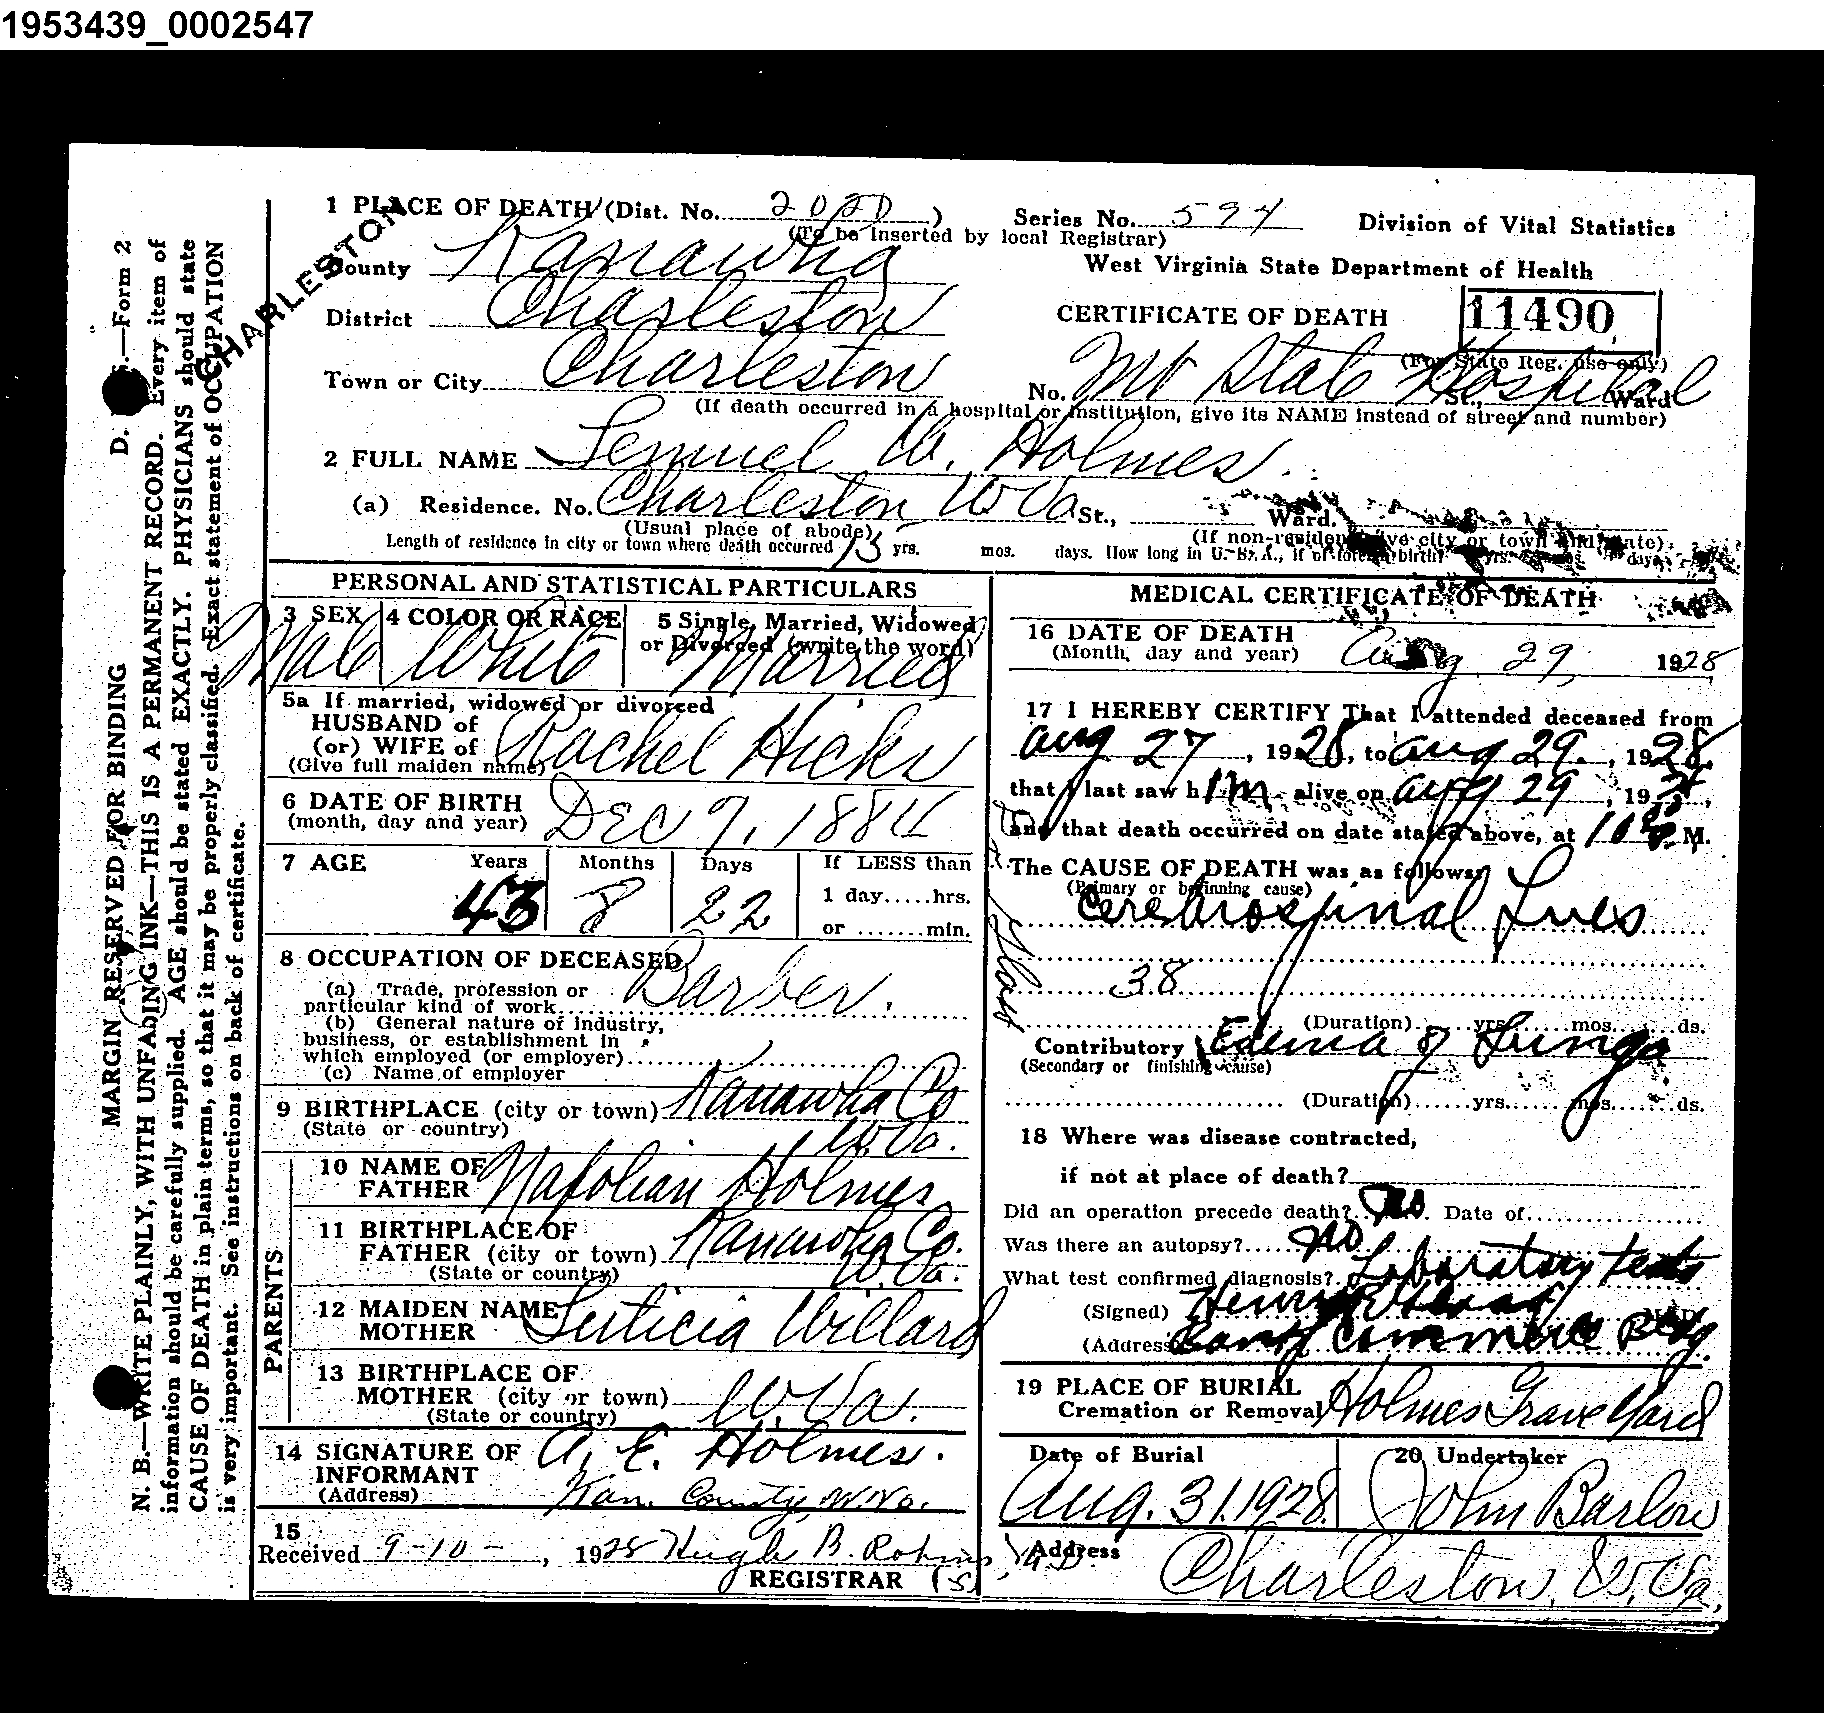 1953439_0002547
1 PLACE OF DEATH (Dist. No. 2020)
Series No. 594
Division of Vital Statistics
(To be inserted by local Registrar)
CHARLESTON
County Kanawha
West Virginia State Department of Health
District Charleston
CERTIFICATE OF DEATH
11490
(For State Reg. use only)
Town or City Charleston
No. Mt State Hospital St., Ward
(If death occurred in a hospital or institution, give its NAME instead of street and number)
2 FULL NAME Lemuel W. Holmes.
(a) Residence. No. Charleston W Va St., Ward.
(Usual place of abode)
(If non-resident give city or town and state)
Length of residence in city or town where death occurred 13 yrs. mos. days. How long in U. S. A., if of foreign birth? yrs. mos. days
PERSONAL AND STATISTICAL PARTICULARS
3 SEX Male
4 COLOR OR RACE White
5 Single, Married, Widowed
or Divorced (write the word)
Married
5a If married, widowed or divorced
HUSBAND of
(or) WIFE of Rachel Hicks
(Give full maiden name)
6 DATE OF BIRTH Dec 7, 1884
(month, day and year)
7 AGE Years 43 Months 8 Days 22
If LESS than
1 day.....hrs.
or .......min.
8 OCCUPATION OF DECEASED
(a) Trade, profession or
particular kind of work Barber.
(b) General nature of industry,
business, or establishment in
which employed (or employer)
(c) Name of employer
9 BIRTHPLACE (city or town) Kanawha Co
(State or country) W. Va.
PARENTS
10 NAME OF
FATHER Napolian Holmes
11 BIRTHPLACE OF
FATHER (city or town) Kanawha Co.
(State or country) W. Va.
12 MAIDEN NAME
MOTHER Leiticia Willard
13 BIRTHPLACE OF
MOTHER (city or town)
(State or country) W. Va.
14 SIGNATURE OF
INFORMANT A. E. Holmes.
(Address) Kan. County, W. Va.
15
Received 9-10-, 1928 Hugh B. Robins M.D.
REGISTRAR (S)
MEDICAL CERTIFICATE OF DEATH
16 DATE OF DEATH
(Month, day and year) Aug 29, 1928
17 I HEREBY CERTIFY That I attended deceased from
Aug 27, 1928, to Aug 29., 1928.
that I last saw him alive on Aug 29, 19
and that death occurred on date stated above, at M.
The CAUSE OF DEATH was as follows:
(Primary or beginning cause)
Cerebrospinal Lues
38
(Duration) yrs. mos. ds.
Contributory Edema of Lungs
(Secondary or finishing cause)
(Duration) yrs. mos. ds.
18 Where was disease contracted,
if not at place of death?
Did an operation precede death? No. Date of
Was there an autopsy? No
What test confirmed diagnosis? Laboratory tests
(Signed) Henry M.D.
(Address) Commerce Bldg.
19 PLACE OF BURIAL
Cremation or Removal Holmes Grave Yard
Date of Burial
Aug. 31. 1928.
20 Undertaker
John Barlow
Address
Charleston, W. Va,
MARGIN RESERVED FOR BINDING
—Form 2
N. B.—WRITE PLAINLY, WITH UNFADING INK—THIS IS A PERMANENT RECORD. Every item of
information should be carefully supplied. AGE should be stated EXACTLY. PHYSICIANS should state
CAUSE OF DEATH in plain terms, so that it may be properly classified. Exact statement of OCCUPATION
is very important. See instructions on back of certificate.